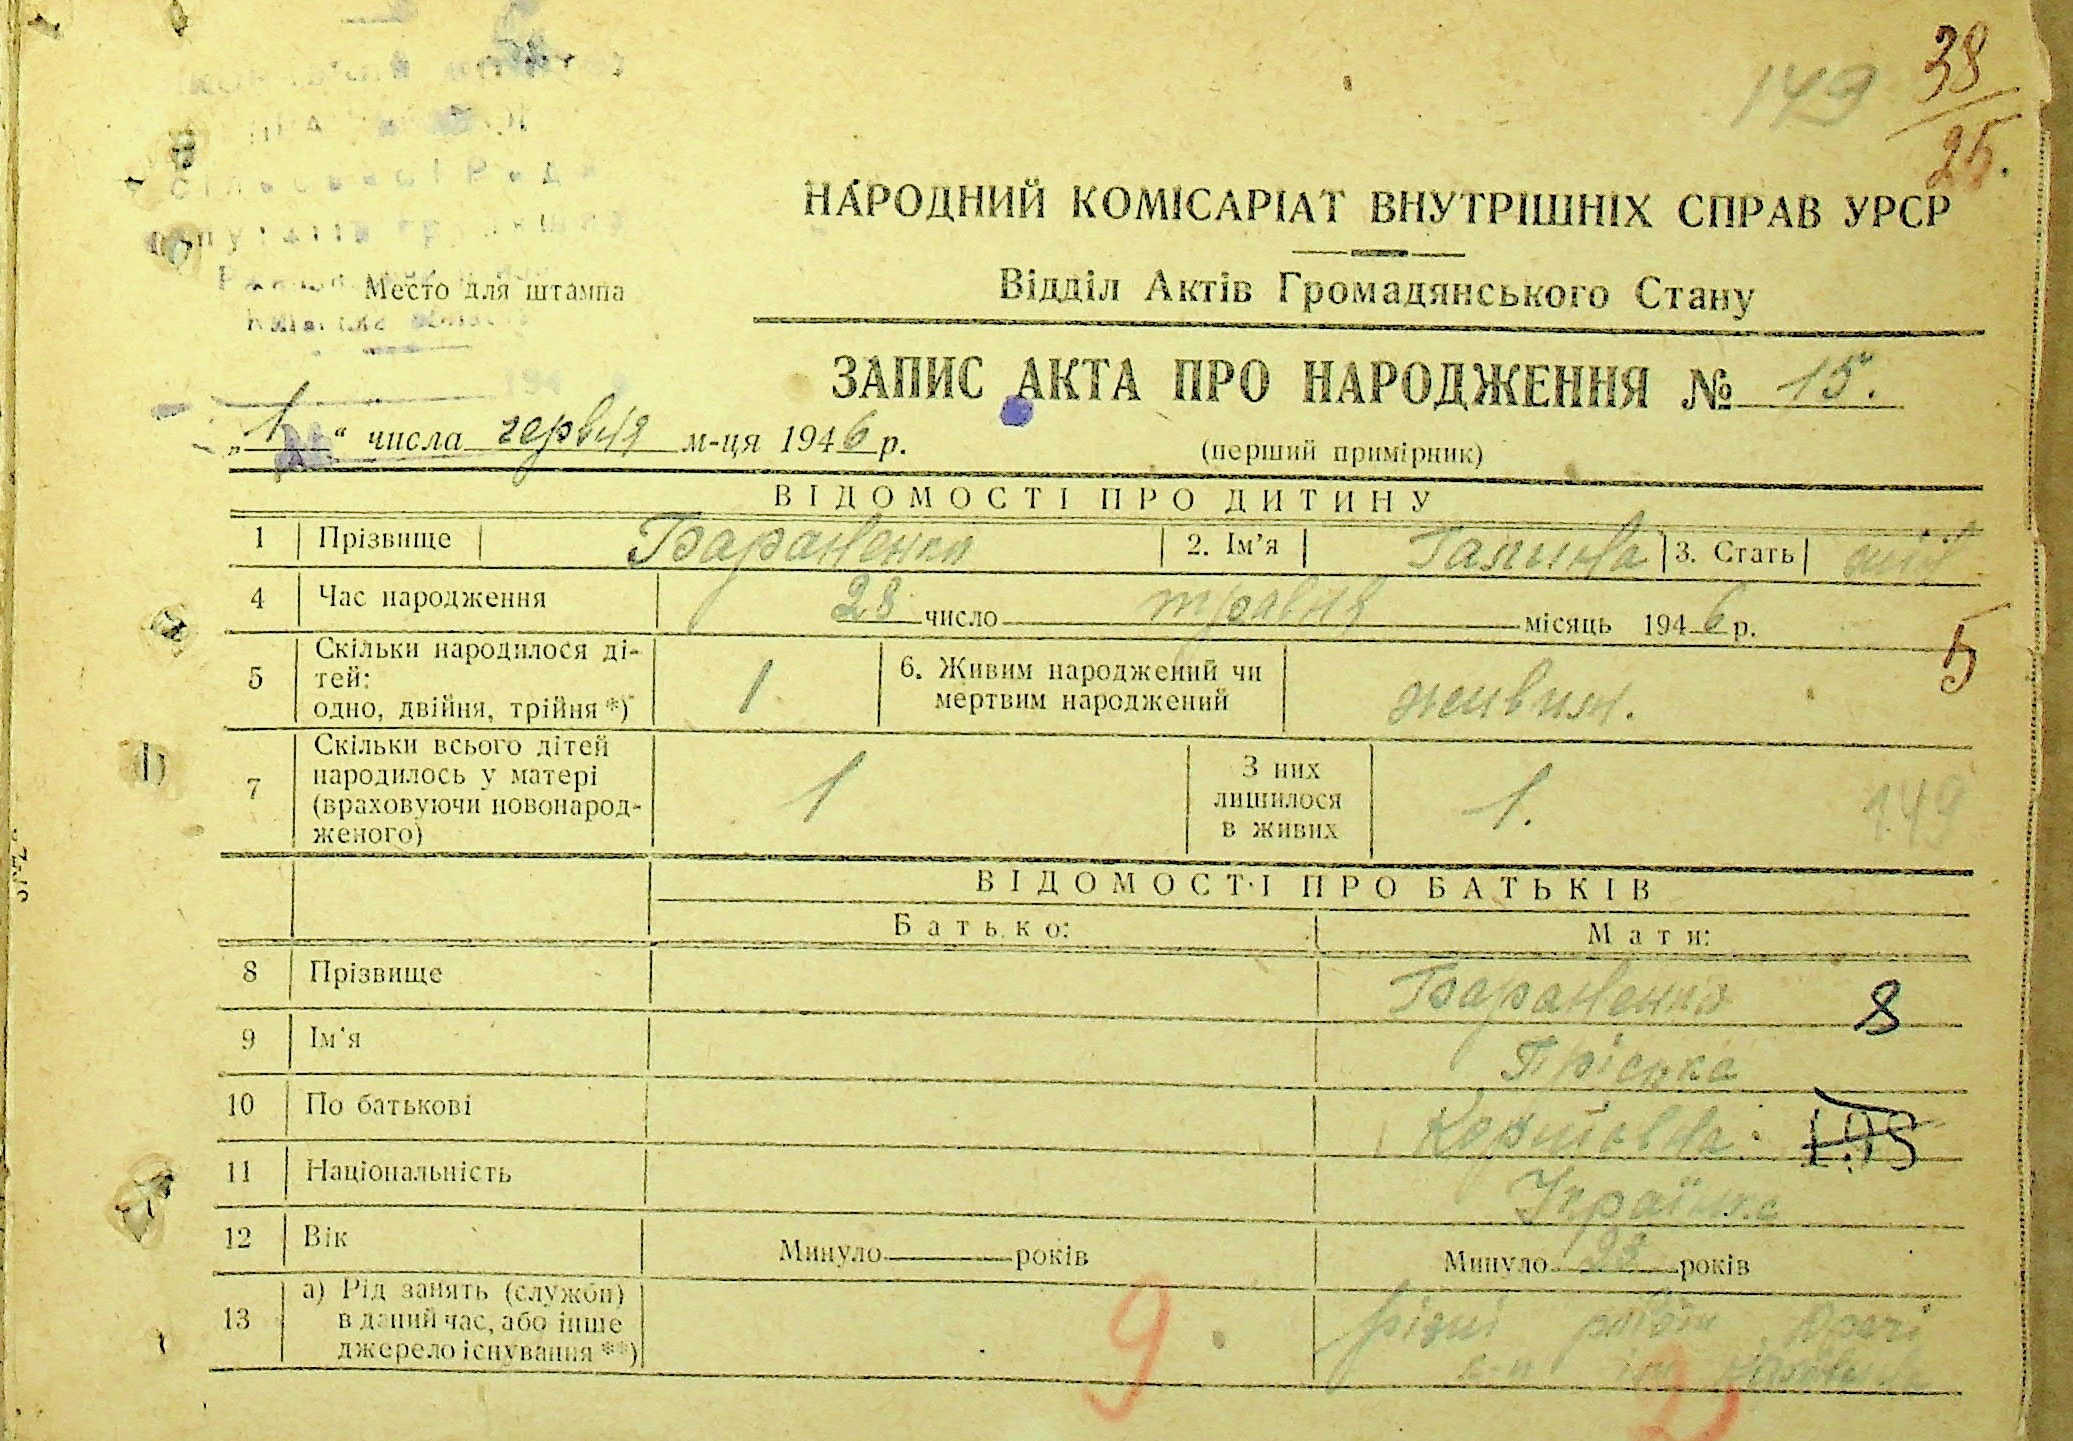 149 38
25.
НАРОДНИЙ КОМІСАРІАТ ВНУТРІШНІХ СПРАВ УРСР
Відділ Актів Громадянського Стану
Место для штампа
ЗАПИС АКТА ПРО НАРОДЖЕННЯ № 15.
„1“ числа червня м-ця 1946 р.
(перший примірник)
ВІДОМОСТІ ПРО ДИТИНУ
1 Прізвище Бараненко 2. Ім'я Галина 3. Стать
4 Час народження 28 число травня місяць 1946 р.
5 Скільки народилося ді-
тей:
одно, двійня, трійня *) 1 6. Живим народжений чи
мертвим народжений живим.
5
7 Скільки всього дітей
народилось у матері
(враховуючи новонарод-
женого) 1 З них
лишилося
в живих 1. 149
ВІДОМОСТІ ПРО БАТЬКІВ
Батько: Мати:
8 Прізвище Бараненко 8
9 Ім'я Пріська
10 По батькові
11 Національність Українка
12 Вік Минуло років Минуло 23 років
13 а) Рід занять (служби)
в даний час, або інше
джерело існування **) різні
9 2